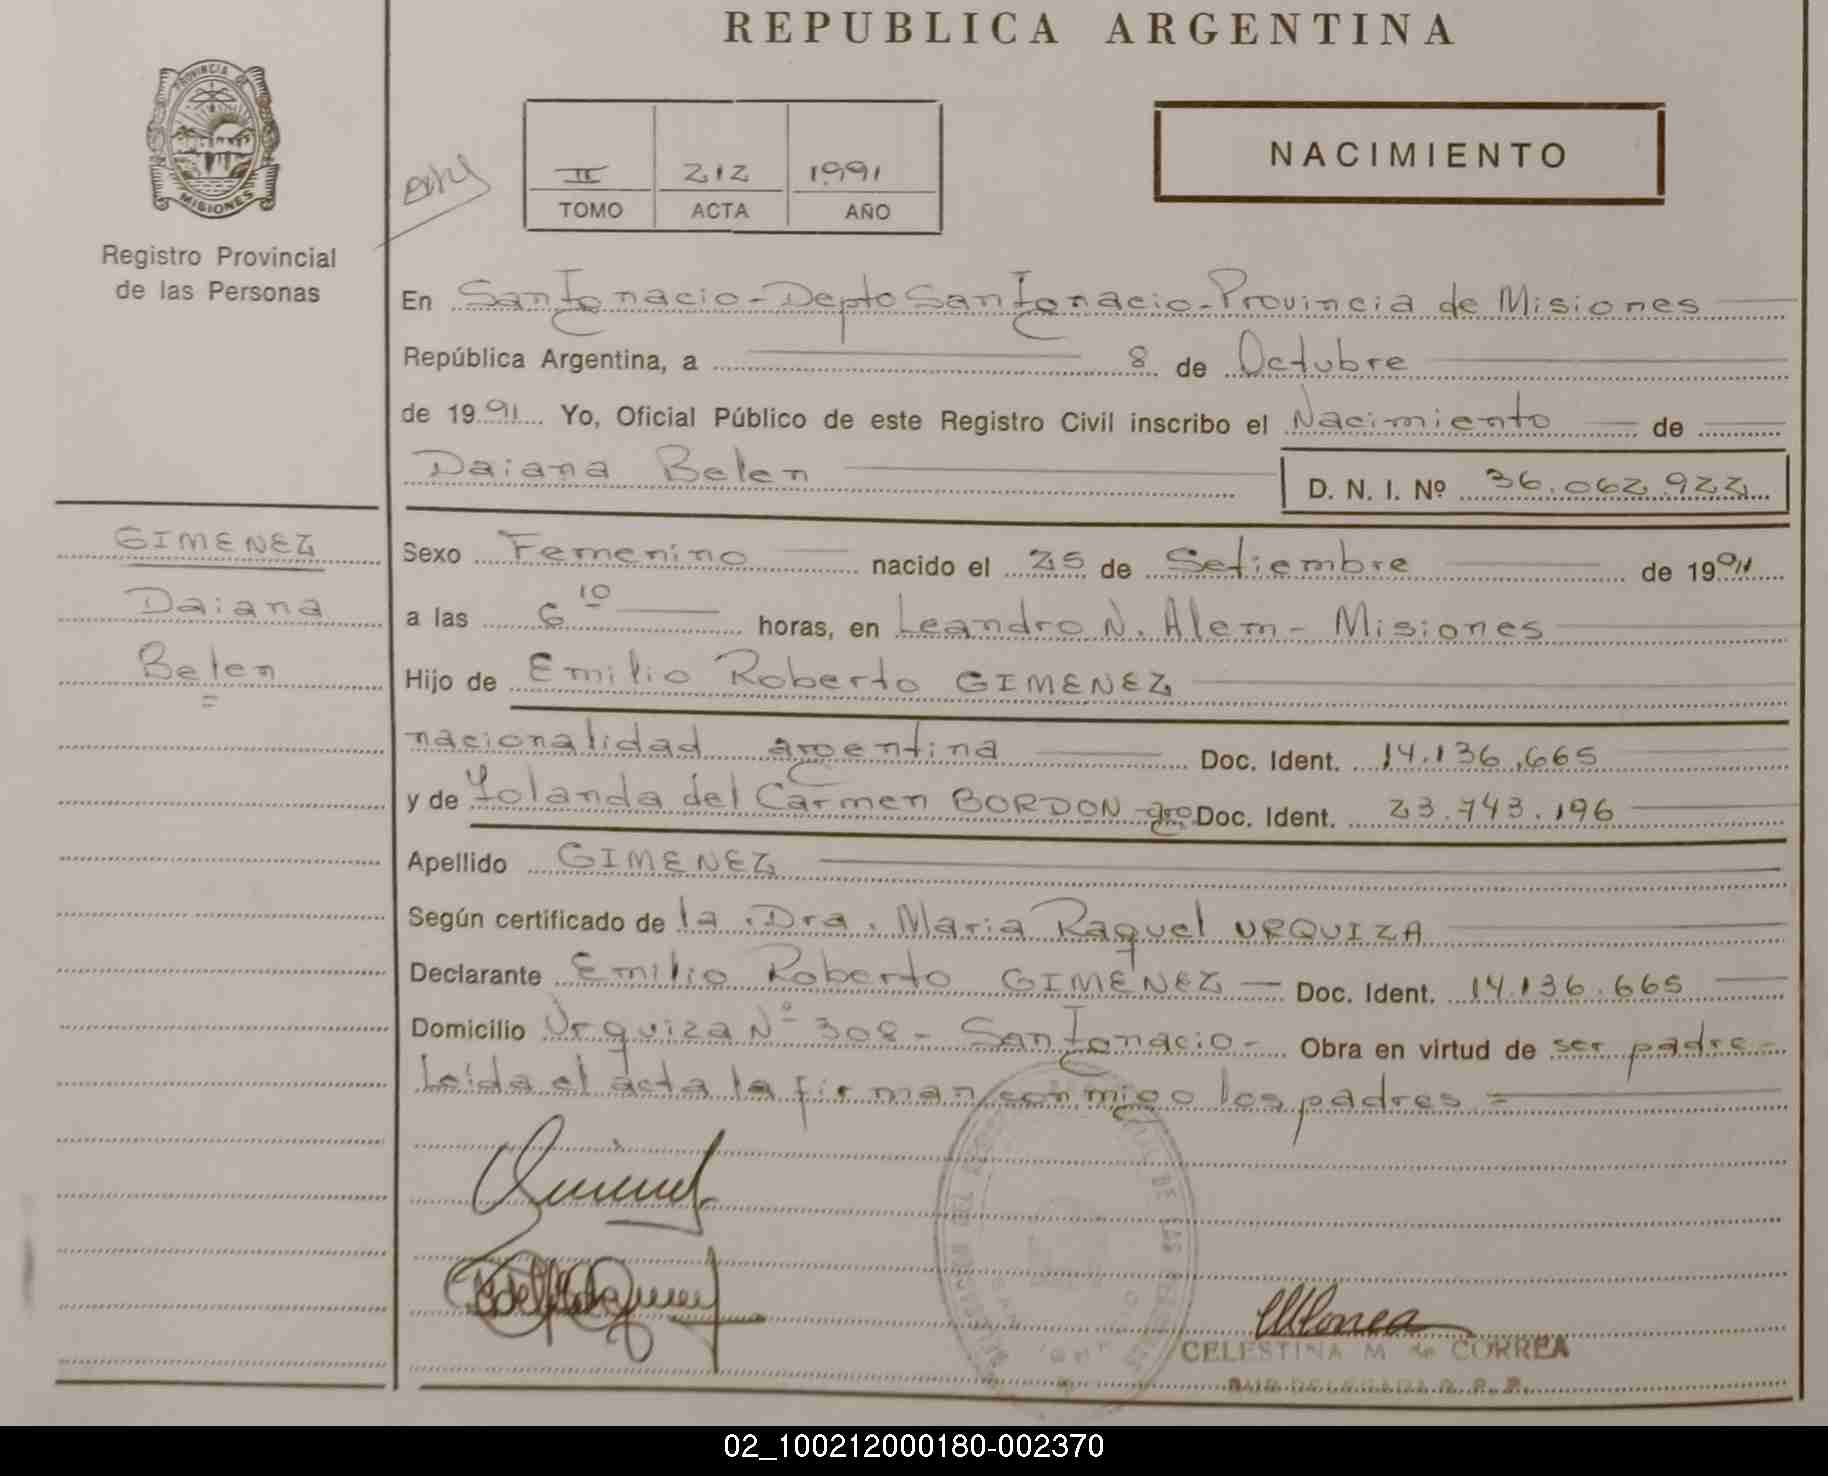 REPUBLICA ARGENTINA
PROVINCIA DE
MISIONES
Registro Provincial
de las Personas
II 212 1991
TOMO ACTA AÑO
NACIMIENTO
En San Ignacio - Depto San Ignacio - Provincia de Misiones
República Argentina, a 8 de Octubre
de 1991 Yo, Oficial Público de este Registro Civil inscribo el Nacimiento de
Daiana Belen D. N. I. Nº 36.062.922
GIMENEZ
Daiana
Belen
Sexo Femenino nacido el 25 de Setiembre de 1991
a las 6 10 horas, en Leandro N. Alem - Misiones
Hijo de Emilio Roberto GIMENEZ
nacionalidad argentina Doc. Ident. 14.136.665
y de Yolanda del Carmen BORDON - arg. Doc. Ident. 23.743.196
Apellido GIMENEZ
Según certificado de la Dra. Maria Raquel URQUIZA
Declarante Emilio Roberto GIMENEZ - Doc. Ident. 14.136.665
Domicilio Urquiza Nº 308 - San Ignacio - Obra en virtud de ser padre -
Leida el acta la firman conmigo los padres =
CELESTINA M de CORREA
SUB DELEGADA R. P. P.
02_100212000180-002370